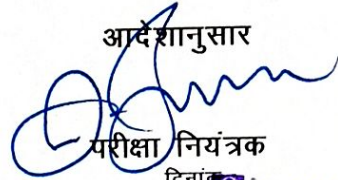 आदेशानुसार
परीक्षा नियंत्रक
दिनांक